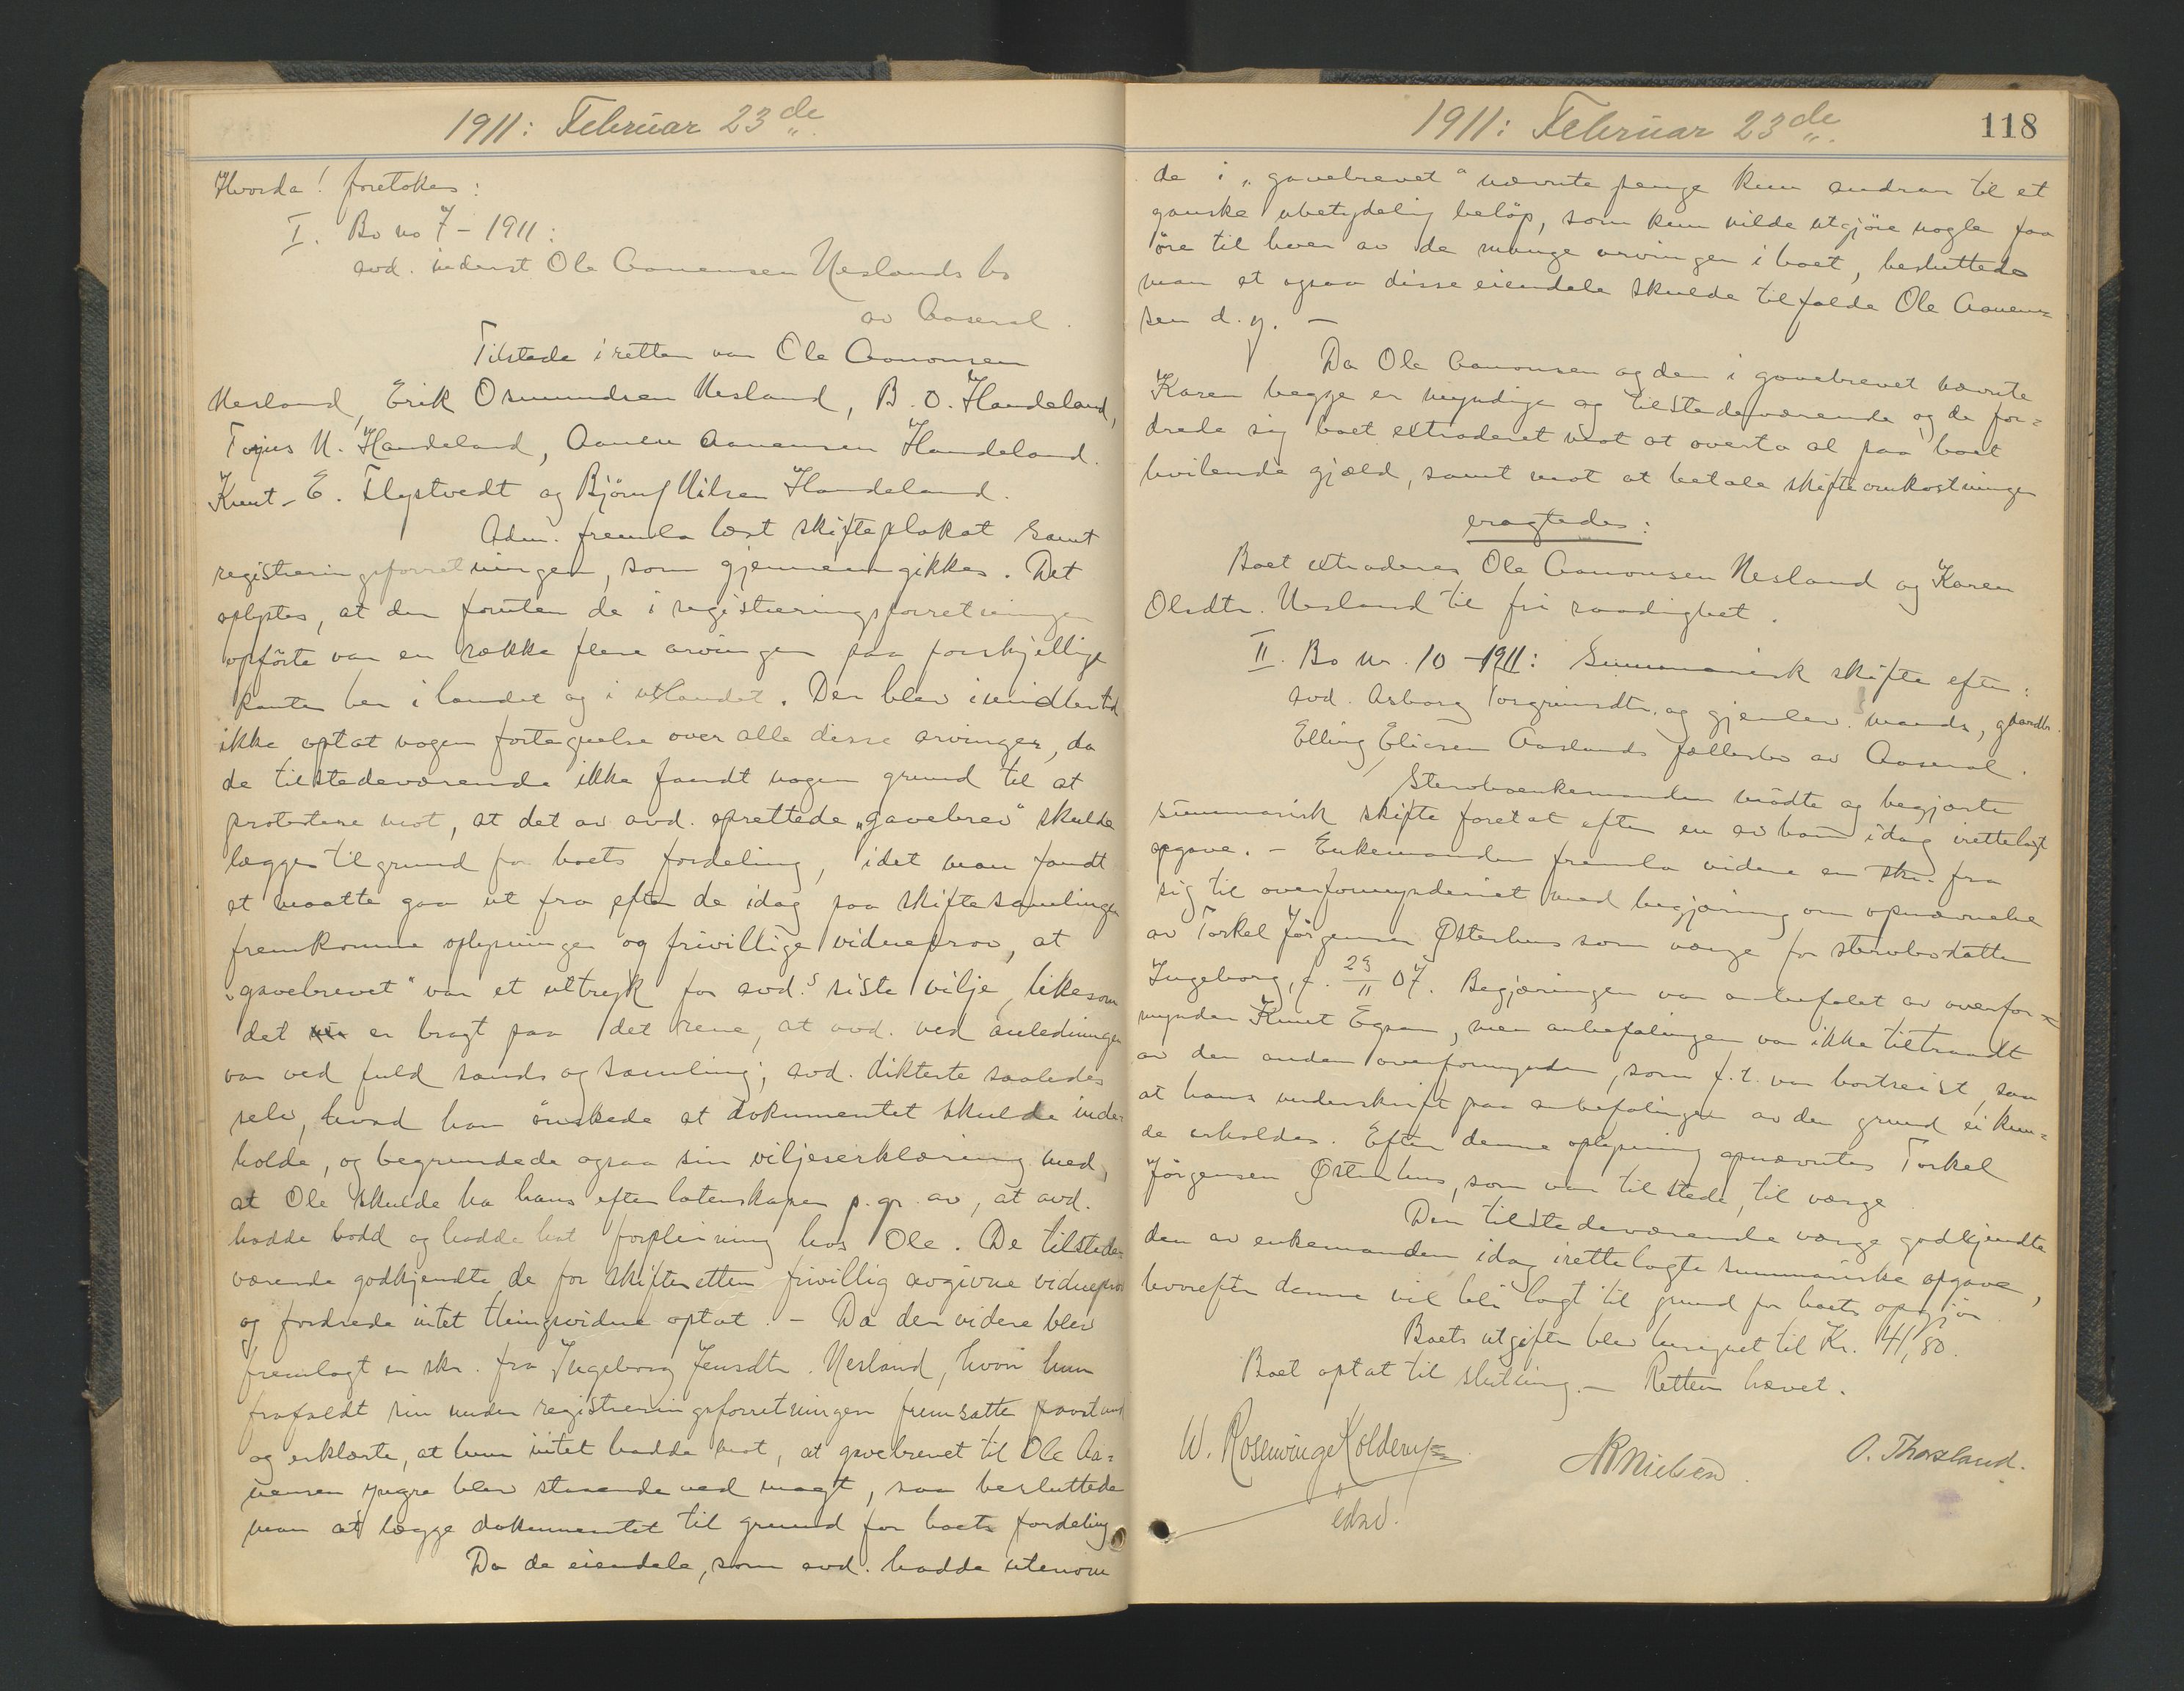 1911: Februar 23de
Hvorda! foretokes:
I. Bo no 7 - 1911:
avd. inderst Ole Aanensen Neslands bo
av Aaseral.
Tilstede i retten var Ole Aanonsen
Nesland, Erik Osmundsen Nesland, B. O. Handeland,
Torjus N. Handeland, Aanen Aanensen Handeland.
Knut E. Flystvedt og Björnf Nilsen Handeland.
Adm. fremla læst skifteplakat samt
registreringsforretningen, som gjennemgikkes. Det
oplystes, at der foruten de i registreringsforretningen
opförte var en række flere arvinger paa forskjellige
kanter her i landet og i utlandet. Der blev imidlertid
ikke optat nogen fortegnelse over alle disse arvinger, da
de tilstedeværende ikke fandt nogen grund til at
protestere mot, at det av avd. oprettede „gavebrev" skulde
lægges til grund for boets fordeling, idet man fandt
at maatte gaa ut fra efter de idag paa skiftesamlingen
fremkomne oplysninger og frivillige vidneprov, at
„gavebrevet" var et uttryk for avd.s siste vilje, likesom
det er bragt paa det rene, at avd. ved anledningen
var ved fuld sands og samling; avd. dikterte saaledes
selv, hvad han önskede at dokumentet skulde inde-
holde, og begrundede ogsaa sin viljeserklæring med,
at Ole skulde ha hans efterlatenskaper p. gr. av, at avd.
hadde bodd og hadde hat forpleining hos Ole. De tilstede-
værende godkjendte de for skifteretten frivillig avgivne vidneprov
og fordrede intet thingsvidne optat. - Da der videre blev
fremlagt en skr. fra Ingeborg Jensdtr. Nesland, hvori hun
frafaldt sin under registreringsforretningen fremsatte paastand
og erklærte, at hun intet hadde mot, at gavebrevet til Ole Aa-
nensen yngre blev staaende ved magt, saa besluttede
man at lægge dokumentet til grund for boets fordeling
Da de eiendele, som avd. hadde utenom
1911: Februar 23de
118
de i „gavebrevet" nævnte penge kun andrar til et
ganske ubetydelig belöp, som kun vilde utgjöre nogle faa
öre til hver av de mange arvinger i boet, besluttedes
man at ogsaa disse eiendele skulde tilfalde Ole Aanen-
sen d. y. -
Da Ole Aanonsen og den i gavebrevet nævnte
Karen begge er myndige og tilstedeværende og de for-
drede sig boet extraderet mot at overta al paa boet
hvilende gjæld, samt mot at betale skifteomkostninger
eragtedes:
Boet extraderes Ole Aanonsen Nesland og Karen
Olsdtr. Nesland til fri raadighet.
II. Bo nr. 10 - 1911: Summarisk skifte efter:
avd. Asborg Torgrimsdtr. og gjenlev. mands, gaardbr.
Elling Eliesen Aaslands fællesbo av Aaseral.
Stervboenkemanden mödte og begjærte
summarisk skifte foretat efter en av ham idag irettelagt
opgave. - Enkemanden fremla videre en skr. fra
sig til overformynderiet med begjæring om opnævnelse
av Torkel Jörgensen Österhus som værge for stervbodatter
Ingeborg, f. 29/11 07. Begjæringen var anbefalet av overfor-
mynder Knut Egsaa, men anbefalingen var ikke tiltraadt
av den anden overformynder, som f. t. var bortreist, saa
at hans underskrift paa anbefalingen av den grund ei kun-
de erholdes. Efter denne oplysning opnævntes Torkel
Jörgensen Österhus, som var tilstede, til værge
Den tilstedeværende værge godkjendte
den av enkemanden idag irettelagte summariske opgave,
hvorefter denne vil bli lagt til grund for boets opgjör
Boets utgifter blev beregnet til Kr. 41,80.
Boet optat til slutning. - Retten hævet.
W. Rosenvinge Kolderup
edsv.
NRNielsen.
O. Thorsland.